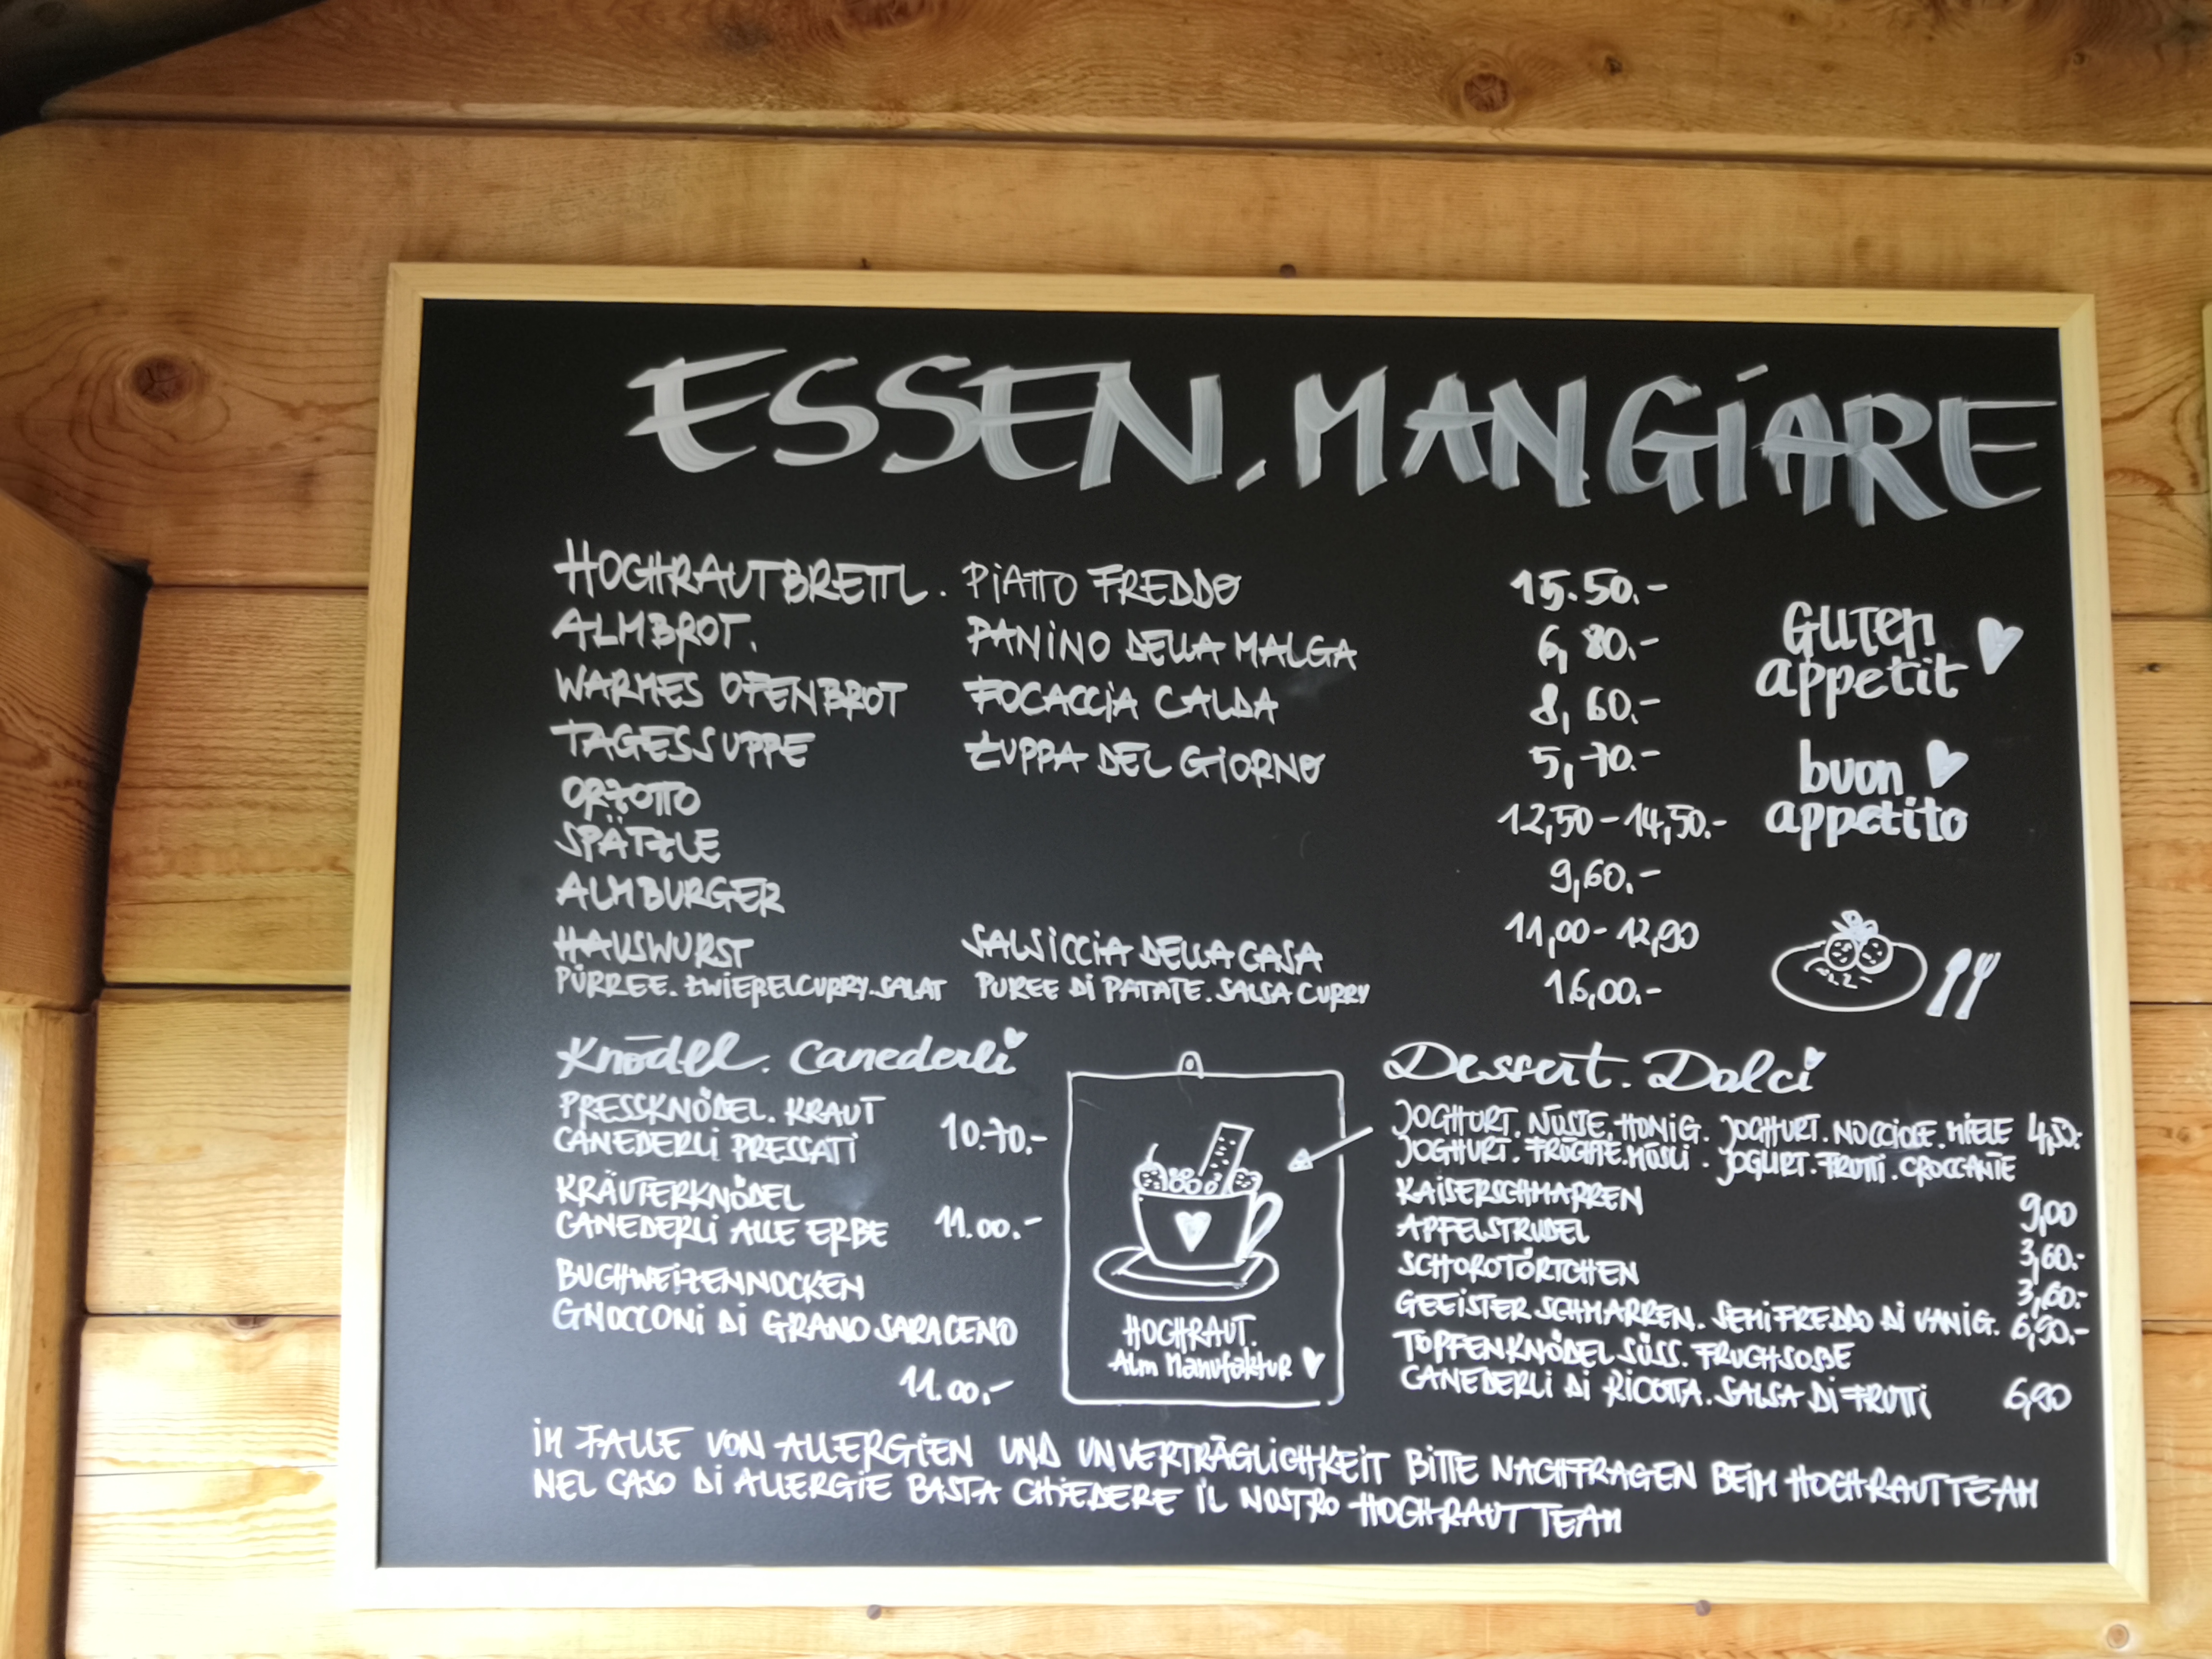 ESSEN. MANGIARE
HOCHRAUTBRETTL. PIATTO FREDDO 15.50.-
ALMBROT. PANINO DELLA MALGA 6,80.-
WARMES OFENBROT FOCACCIA CALDA 8,60.-
TAGESSUPPE ZUPPA DEL GIORNO 5,70.-
ORZOTTO 12,50-14,50.-
SPÄTZLE 9,60.-
ALMBURGER 11,00-12,90
HAUSWURST SALSICCIA DELLA CASA
PÜRREE. ZWIEBELCURRY. SALAT PUREE DI PATATE. SALSA CURRY 16,00.-
Guten
appetit
buon
appetito
Knödel. Canederli
PRESSKNÖDEL. KRAUT
CANEDERLI PRESSATI 10.70.-
KRÄUTERKNÖDEL
CANEDERLI ALLE ERBE 11.00.-
BUCHWEIZENNOCKEN
GNOCCONI DI GRANO SARACENO
11.00,-
HOCHRAUT.
Alm Manufaktur
Dessert. Dolci
JOGHURT. NÜSSE. HONIG. JOGHURT. NOCCIOLE. MIELE 4,50.-
JOGHURT. FRÜCHTE. MÜSLI. JOGURT. FRUTTI. CROCCANTE
KAISERSCHMARREN 9,00
APFELSTRUDEL 3,60.-
SCHOKOTÖRTCHEN 3,60.-
GEEISTER SCHMARREN. SEMIFREDDO DI VANIG. 6,90.-
TOPFENKNÖDEL SÜSS. FRUCHSOßE
CANEDERLI DI RICOTTA. SALSA DI FRUTTI 6,90
IM FALLE VON ALLERGIEN UND UNVERTRÄGLICHKEIT BITTE NACHFRAGEN BEIM HOCHRAUTTEAM
NEL CASO DI ALLERGIE BASTA CHIEDERE IL NOSTRO HOCHRAUT TEAM